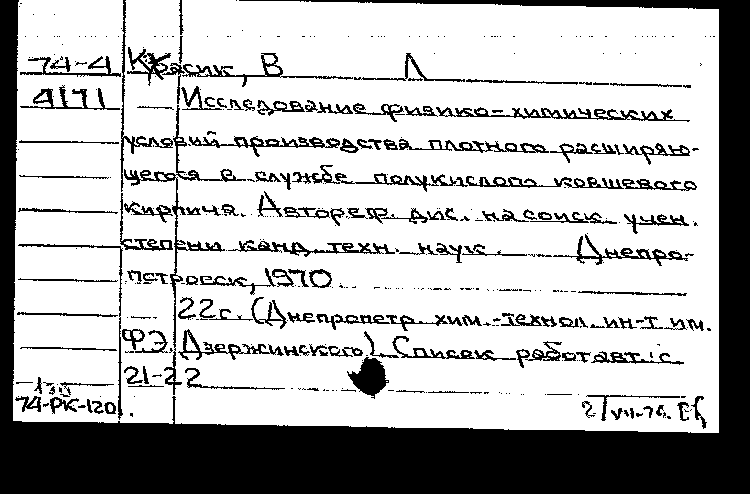 74-4 Красик, В Л
4171 Исследование физико-химических
условий производства плотного расширяю-
щегося в службе полукислого ковшевого
кирпича. Автореф. дис. на соиск. учен.
степени канд. техн. наук. Днепро-
петровск, 1970.
22с. (Днепропетр. хим.-технол. ин-т им.
Ф.Э. Дзержинского). Список работ авт.: с.
21-22
74-РК-120. 2/VII-74.